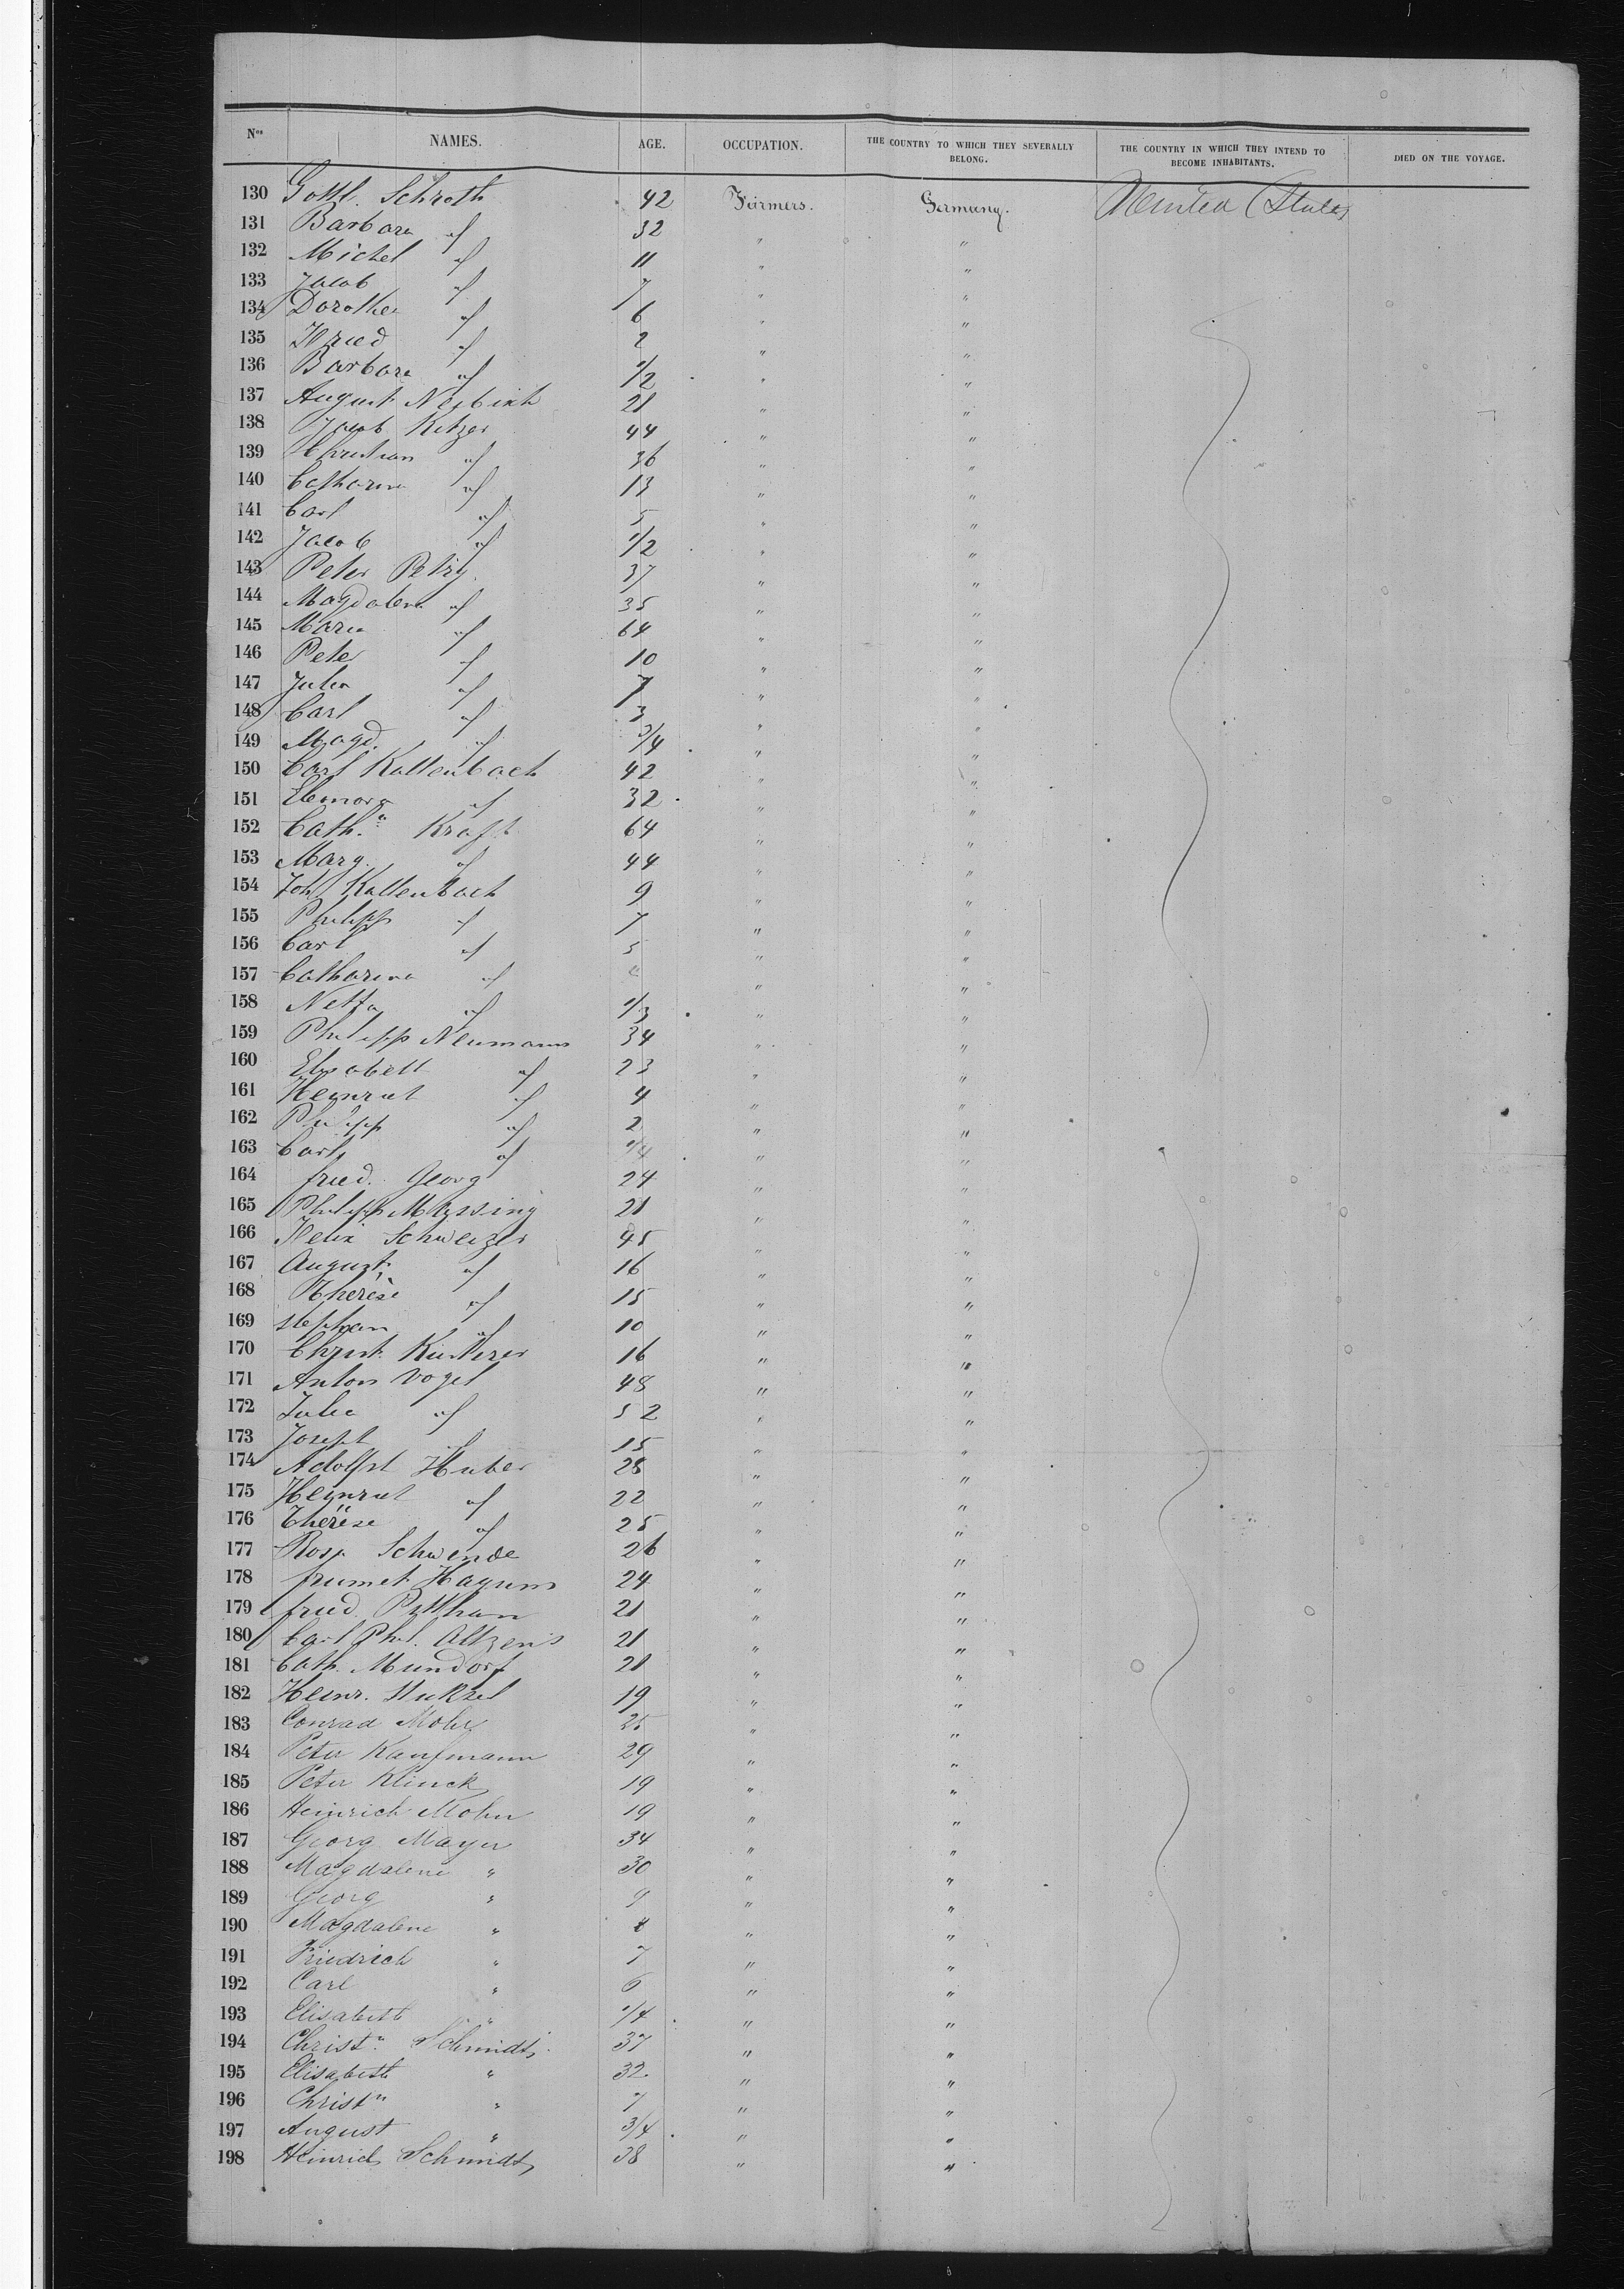 Nos NAMES. AGE. OCCUPATION. THE COUNTRY TO WHICH THEY SEVERALLY BELONG. THE COUNTRY IN WHICH THEY INTEND TO BECOME INHABITANTS. DIED ON THE VOYAGE.
130 Gottl. Schroth 42 Farmers. Germany. United States
131 Barbara " 32 " "
132 Michel " 11 " "
133 Jacob " 7 " "
134 Dorothea " 6 " "
135 Fried " 2 " "
136 Barbara " 1/2 " "
137 August 21 " "
138 Jacob Kitzer 44 " "
139 Christian " 36 " "
140 Catharina " 13 " "
141 Carl " 5 " "
142 Jacob " 1/2 " "
143 Peter Petry 37 " "
144 Magdalena " 35 " "
145 Maria " 64 " "
146 Peter " 10 " "
147 Julia " 7 " "
148 Carl " 3 " "
149 Magd. " 3/4 " "
150 Carl Kallenbach 42 " "
151 Elenora " 32 " "
152 Cath.a Kraft 64 " "
153 Marg. " 44 " "
154 Joh Kallenbach 9 " "
155 Philipp " 7 " "
156 Carl " 5 " "
157 Catharina " " "
158 Netta " 1/3 " "
159 Philipp Neumann 34 " "
160 Elisabeth " 23 " "
161 Heinrich " 4 " "
162 Philipp " 2 " "
163 Carl " 1/4 " "
164 fried. Georg 24 " "
165 Philipp 21 " "
166 Felix Schweizer 45 " "
167 August " 16 " "
168 Therèse " 15 " "
169 Stephan " 10 " "
170 Christ. 16 " "
171 Anton Vogel 48 " "
172 Julie " 52 " "
173 Joseph " 15 " "
174 Adolph Huber 28 " "
175 Heinrich " 22 " "
176 Therese " 25 " "
177 Rosa Schwende 26 " "
178 24 " "
179 fried. Pitthan 21 " "
180 Carl Phil. 21 " "
181 Cath. Mundorf 21 " "
182 Heinr. 19 " "
183 Conrad Mohr 25 " "
184 Peter Kaufmann 29 " "
185 Peter Klinck 19 " "
186 Heinrich Mohn 19 " "
187 Georg Mayer 34 " "
188 Magdalene " 30 " "
189 Georg " 9 " "
190 Magdalene " 8 " "
191 Friedrich " 7 " "
192 Carl " 6 " "
193 Elisabeth " 1/4 " "
194 Christn Schmidt 37 " "
195 Elisabeth " 32 " "
196 Christn " 7 " "
197 August " 3/4 " "
198 Heinrich Schmidt 38 " "